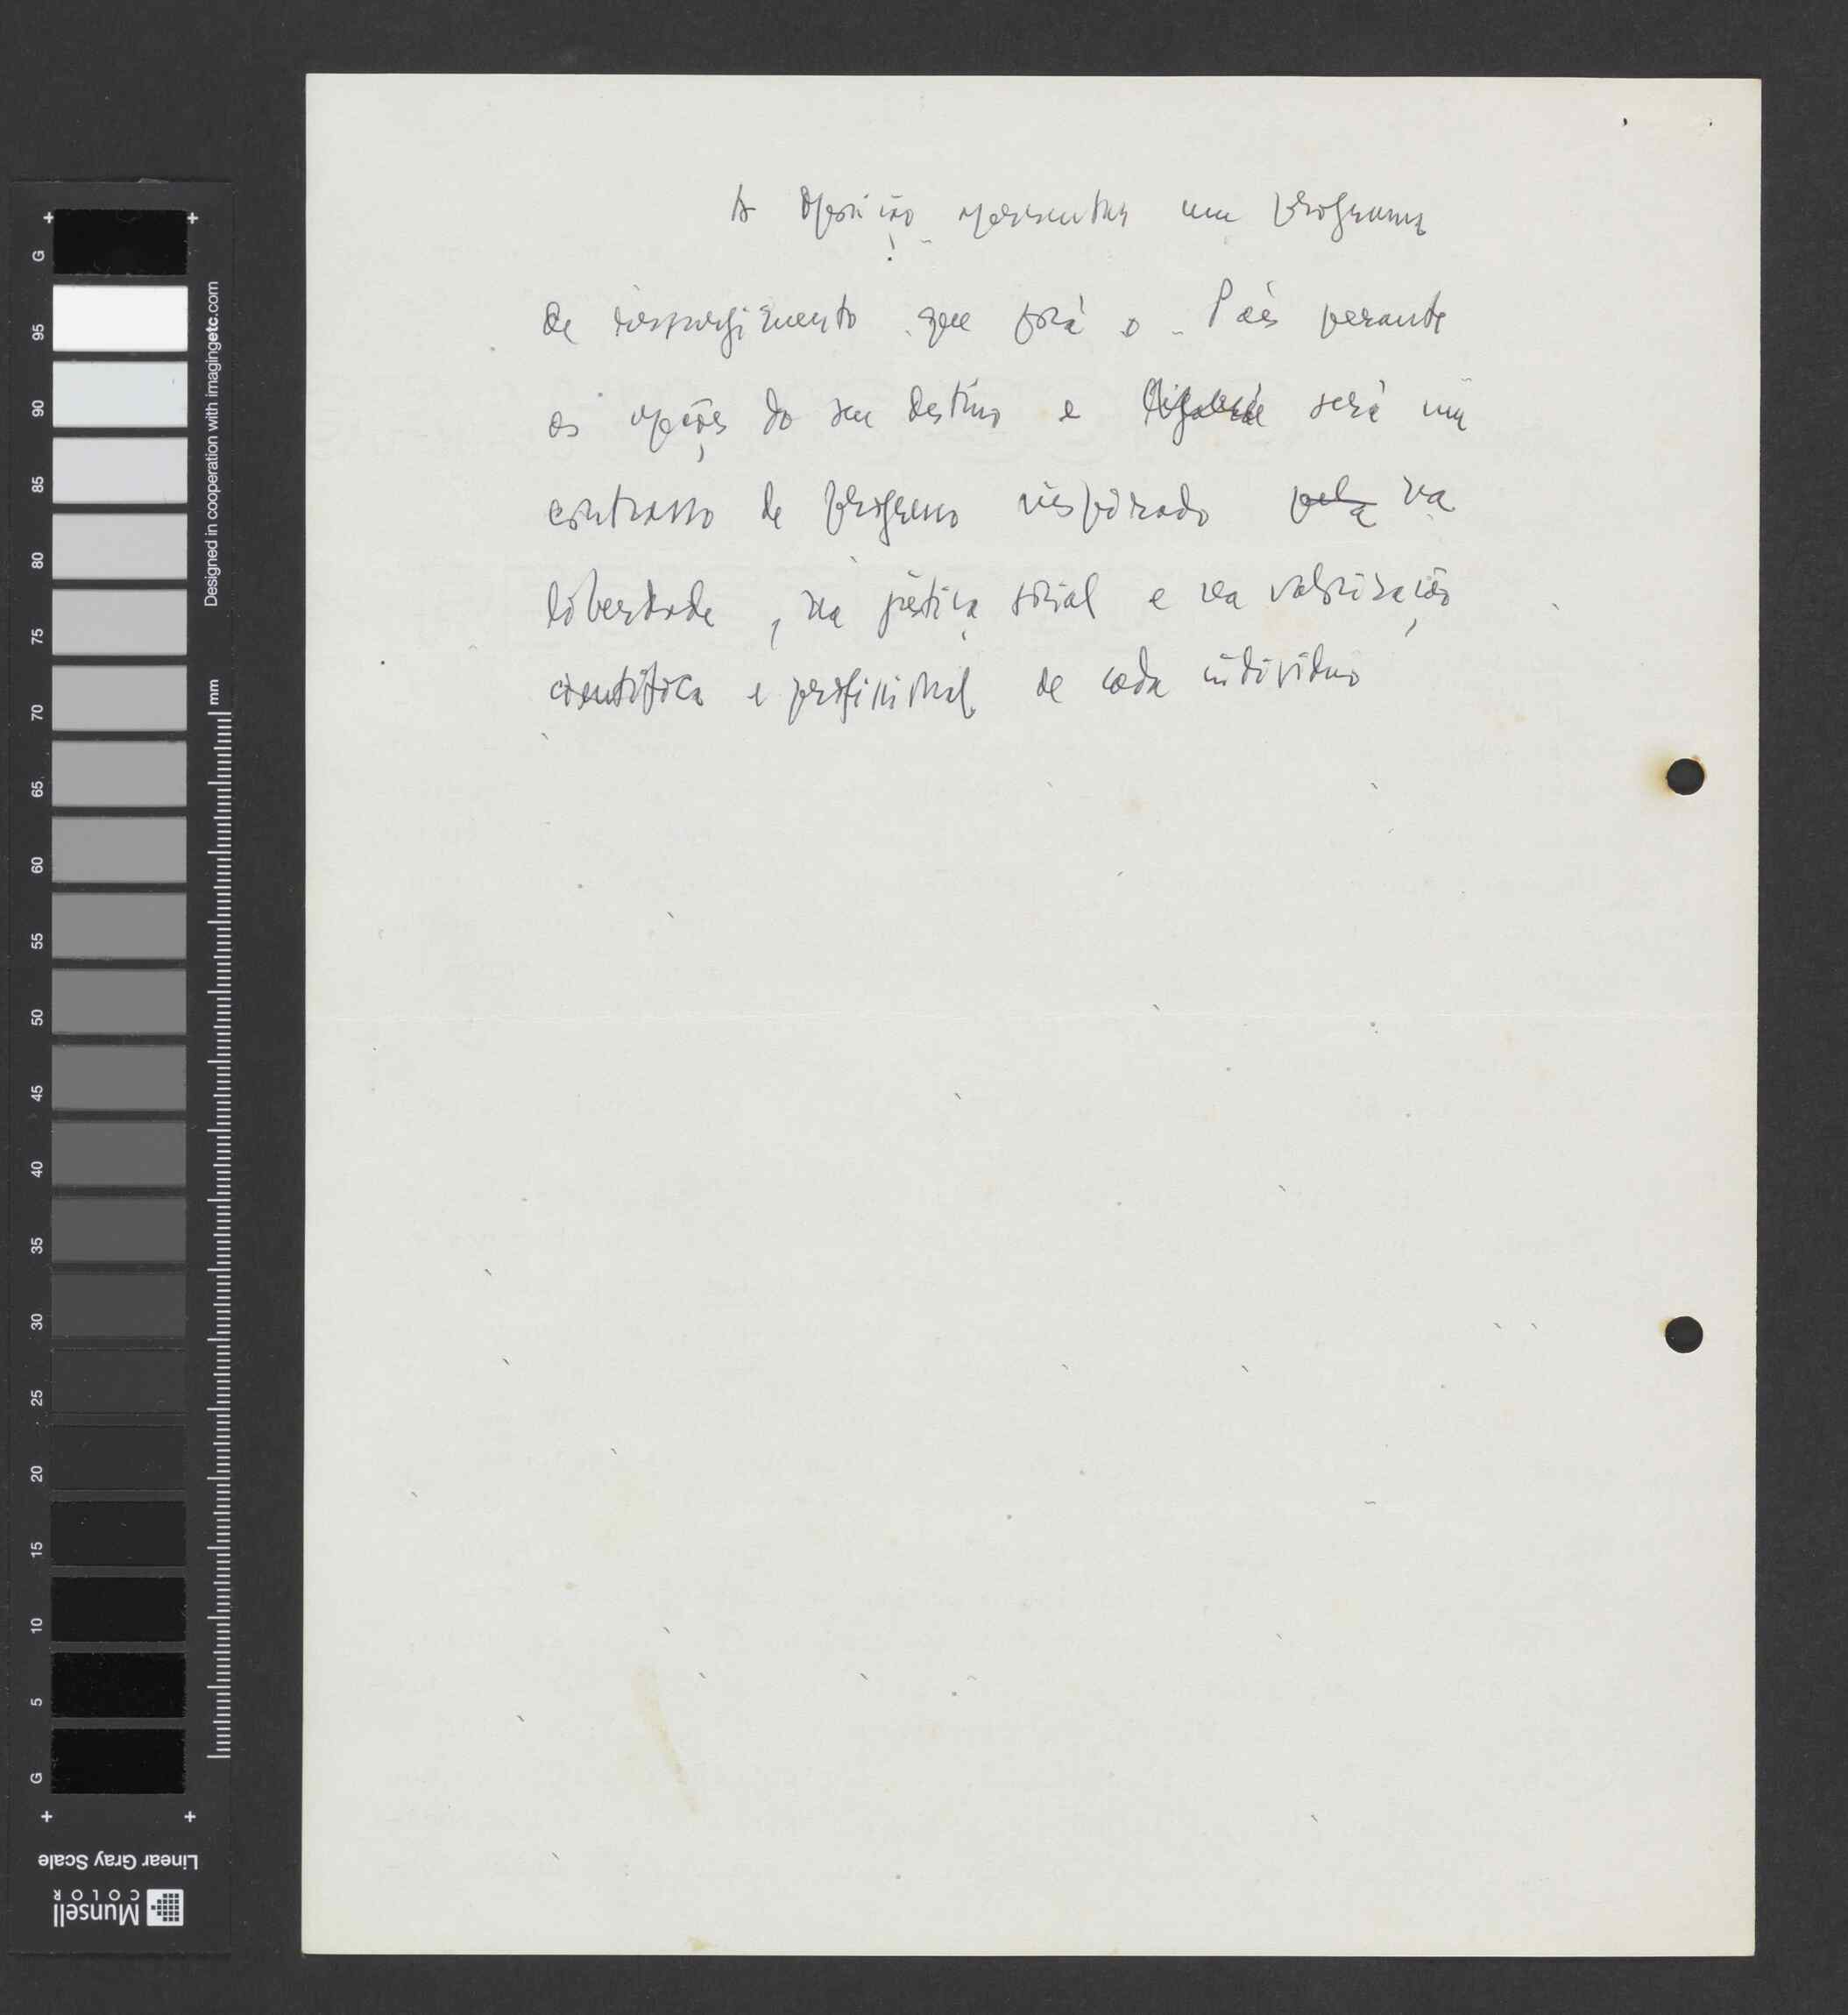 A Oposição apresenta um programa
de ressurgimento que porá o País perante
as opções do seu destino e será um
contrasto de progresso inspirado pela na
liberdade, na justiça social e na valorização
científica e profissional de cada indivíduo
G
95
90
85
80
75
70
65
60
55
50
45
40
35
30
25
20
15
10
5
G
Designed in cooperation with imagingetc.com
mm
Linear Gray Scale
Munsell
COLOR